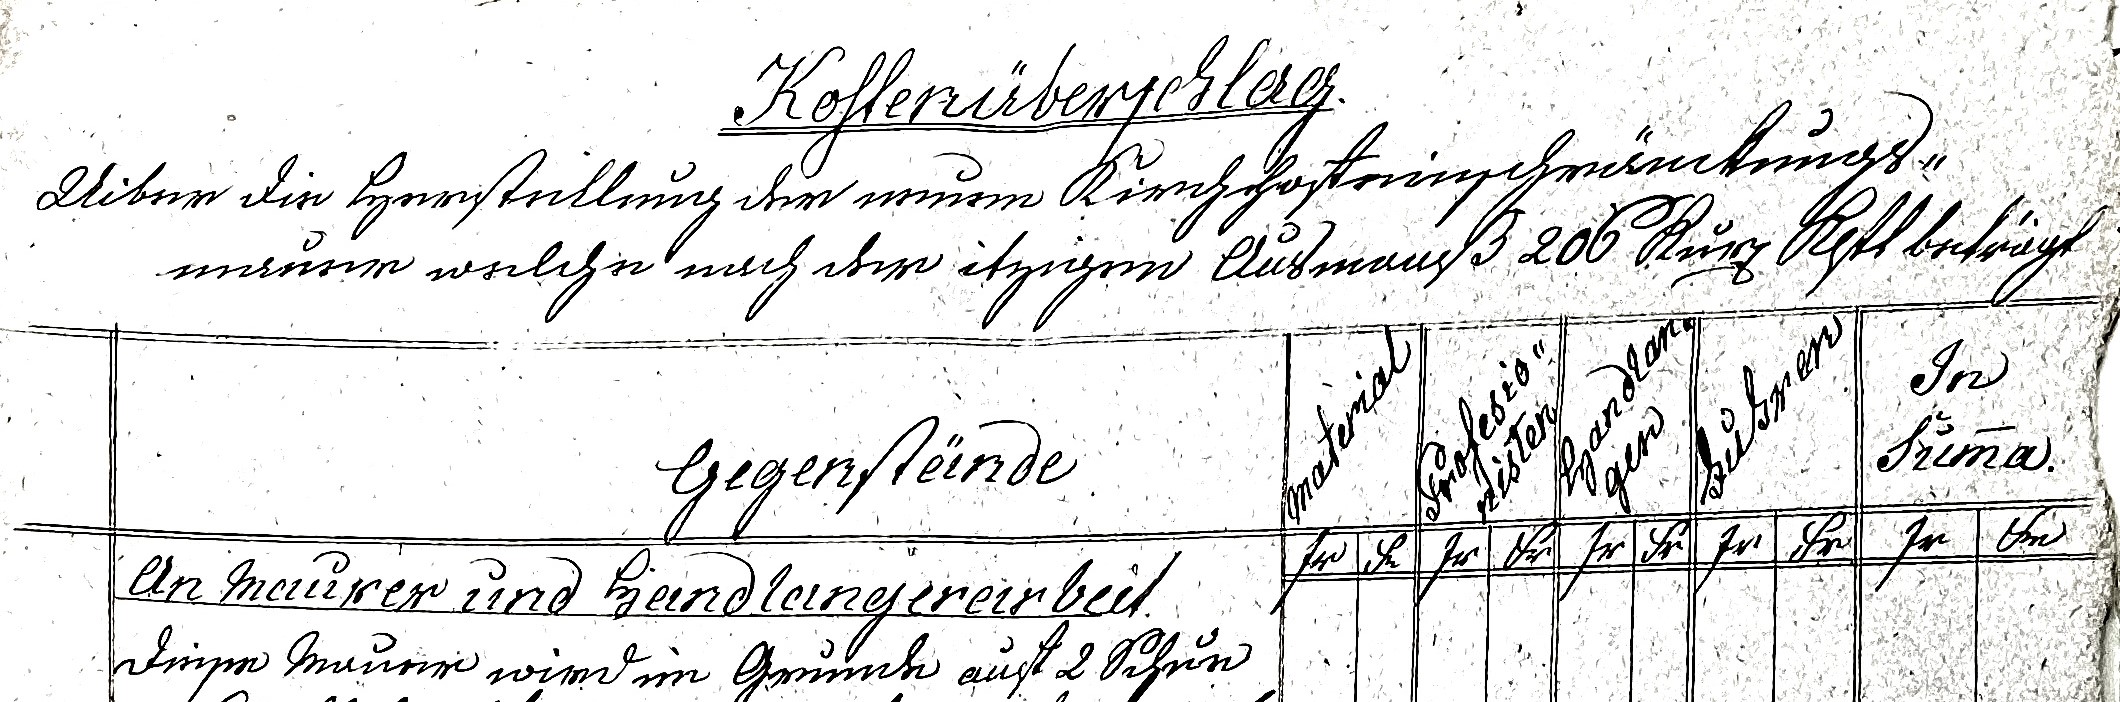 Kostenüberschlag.
Uiber die Herstellung der neuen Kirchhofseinschränkungs-
mauer welche nach der itzigen Ausmaaß 206 Kurz Kftl beträgt
Gegenstände
Material
Profesio-
nisten
Handlan
gen
In
Suma.
fr
fr
fr
fr
fr
An Maurer und Handlangerarbeit.
Diese Mauer wird im Grunde auf 2 Schue